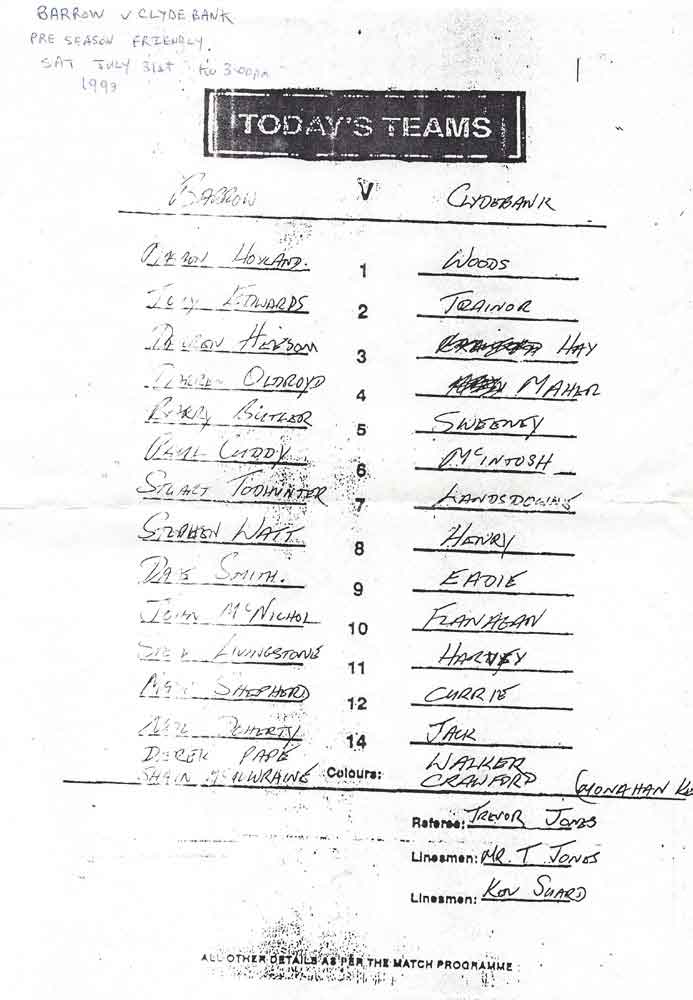 BARROW v CLYDEBANK
PRE SEASON FRIENDLY.
SAT JULY 31st KO 3:00pm
1993
TODAY'S TEAMS
BARROW V CLYDEBANK
HOYLAND. 1 WOODS
TONY EDWARDS 2 TRAINOR
3 HAY
OLDROYD 4 MAHER
BARRY BUTLER 5 SWEENEY
PAUL CUDDY 6 McINTOSH
STUART TODHUNTER 7 LANDSDOWNE
STEPHEN WATT 8 HENRY
DAVE SMITH. 9 EADIE
JOHN McNICHOL 10 FLANAGAN
LIVINGSTONE 11 HARVEY
SHEPHERD 12 CURRIE
NEIL DOHERTY 14 JACK
DEREK PAPE WALKER
McILWRAINE Colours: CRAWFORD (MONAHAN
Referee: TREVOR JONES
Linesmen: MR. T JONES
Linesmen: KEN
ALL OTHER DETAILS AS PER THE MATCH PROGRAMME